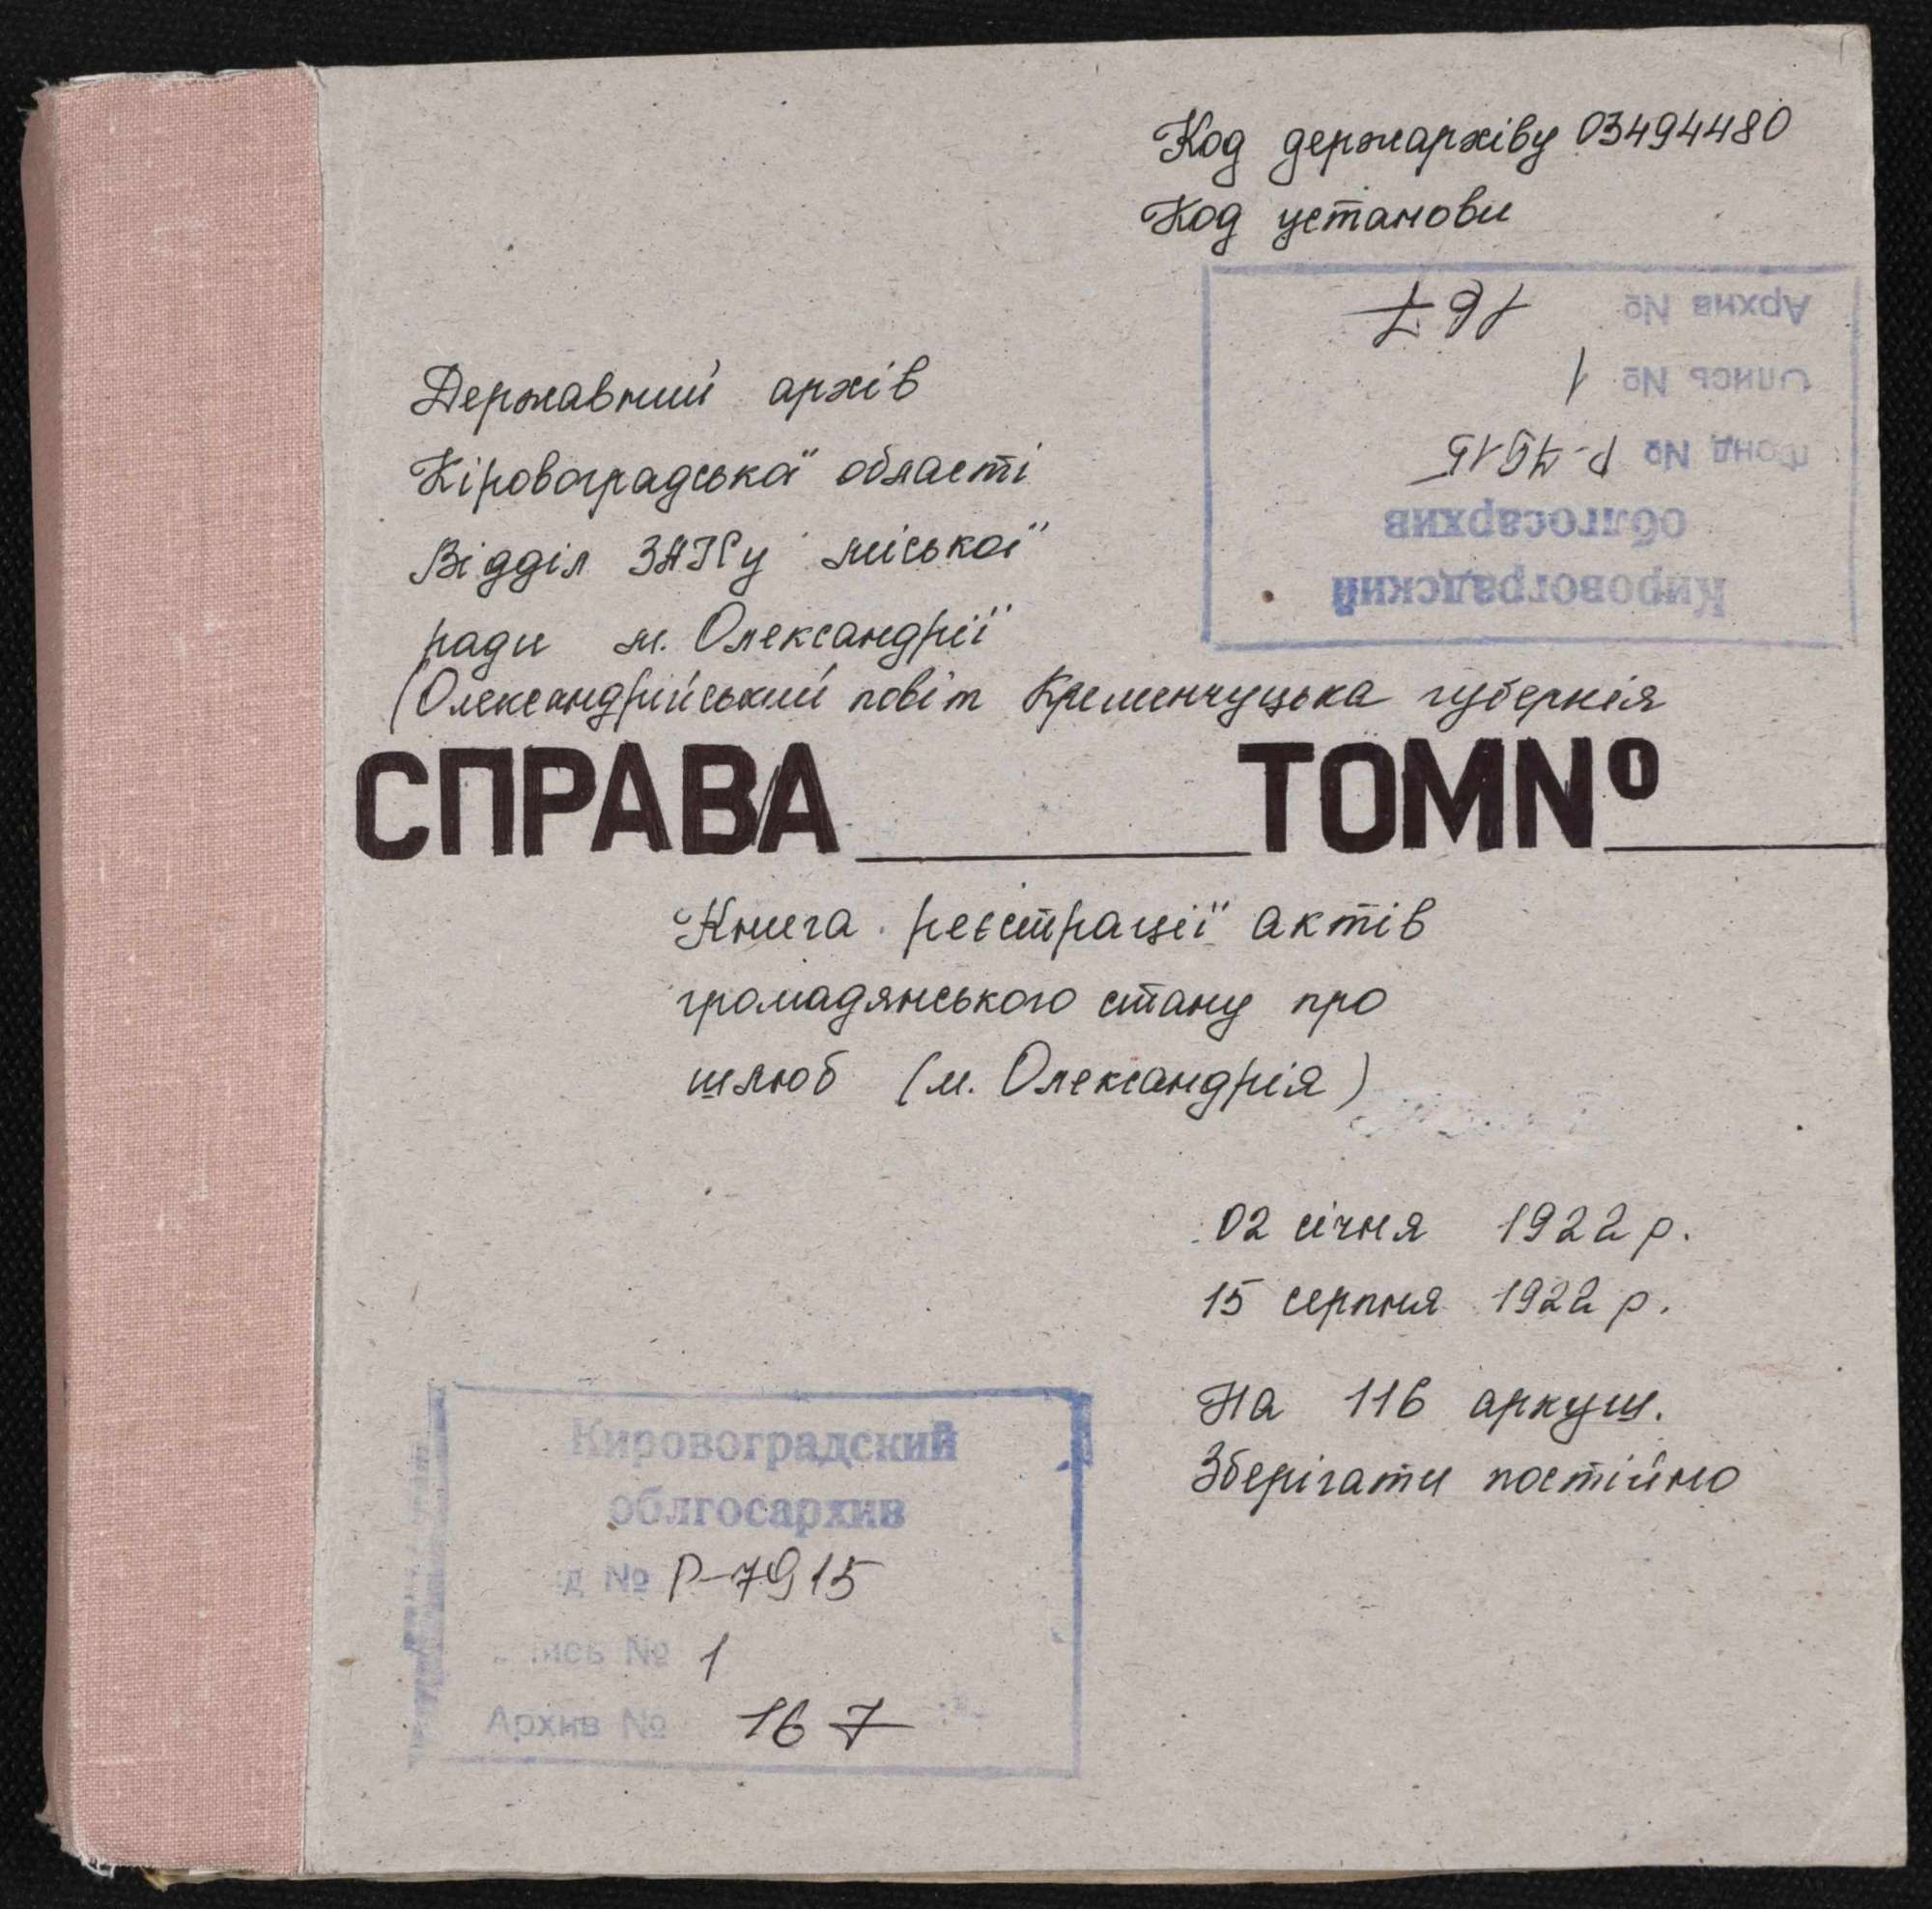 Код держархіву 03494480
Код установи
Кировоградский
облгосархив
Фонд № Р-7915
Опись № 1
Архив № 167
Державний архів
Кіровоградської області
Відділ ЗАГСу міської
ради м. Олександрії
(Олександрійський повіт Кременчуцька губернія
СПРАВА ТОМ №
Книга реєстрації актів
громадянського стану про
шлюб (м. Олександрія)
02 січня 1922 р.
15 серпня 1922 р.
На 116 аркуш.
Зберігати постійно
Кировоградский
облгосархив
д № Р-7915
ись № 1
Архив № 167